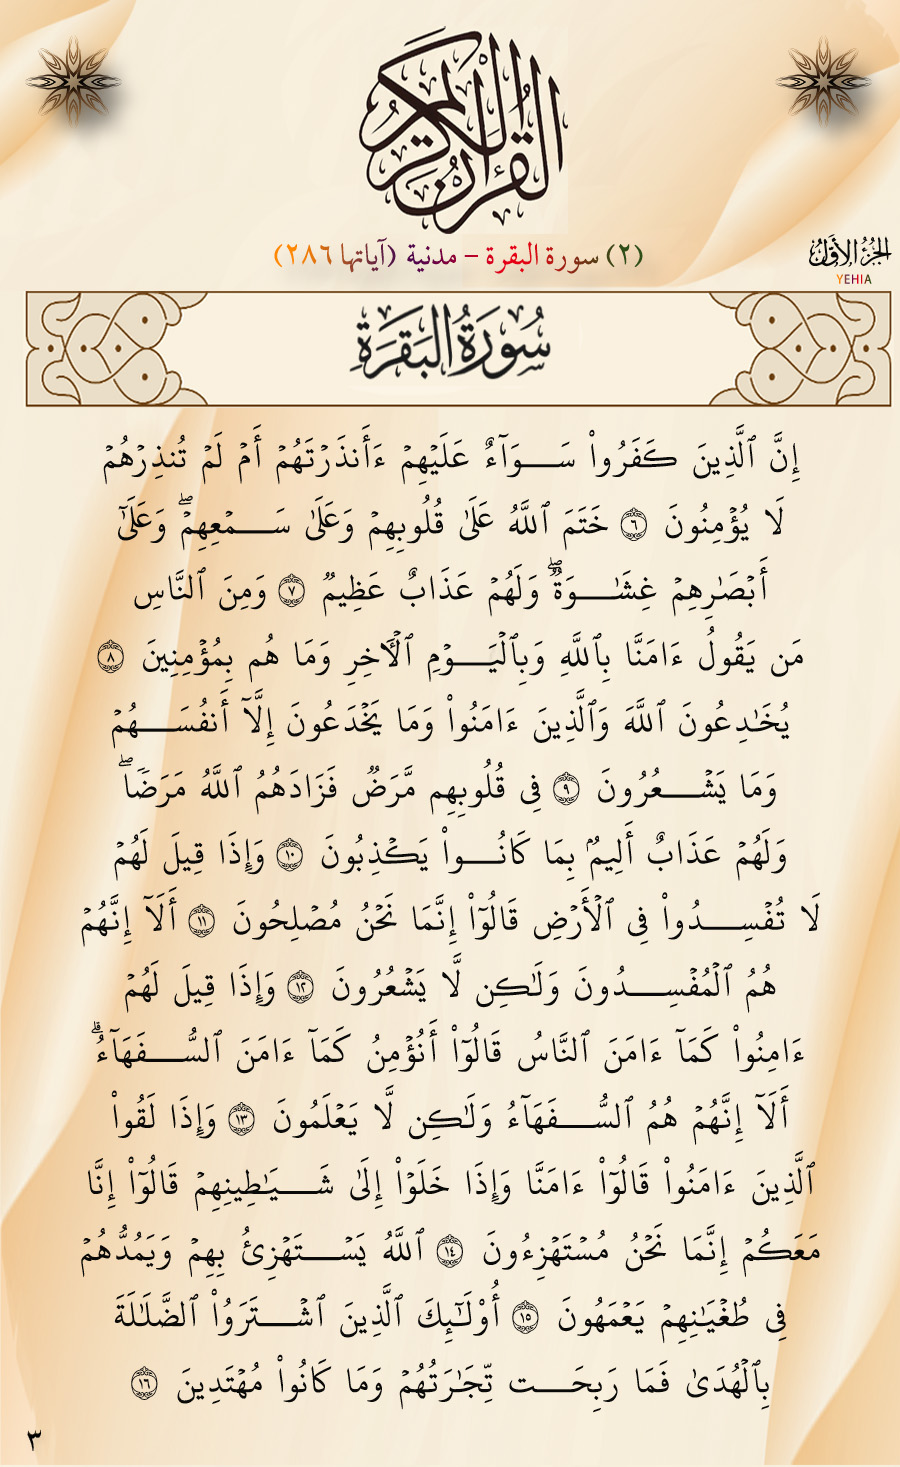 القرآن الكريم
(٢) سورة البقرة - مدنية (آياتها ٢٨٦)
الجزء الأول
YEHIA
سُورَةُ البَقَرَةِ
إِنَّ ٱلَّذِينَ كَفَرُوا۟ سَوَآءٌ عَلَيْهِمْ ءَأَنذَرْتَهُمْ أَمْ لَمْ تُنذِرْهُمْ
لَا يُؤْمِنُونَ ٦ خَتَمَ ٱللَّهُ عَلَىٰ قُلُوبِهِمْ وَعَلَىٰ سَمْعِهِمْ ۖ وَعَلَىٰٓ
أَبْصَـٰرِهِمْ غِشَـٰوَةٌ ۖ وَلَهُمْ عَذَابٌ عَظِيمٌ ٧ وَمِنَ ٱلنَّاسِ
مَن يَقُولُ ءَامَنَّا بِٱللَّهِ وَبِٱلْيَوْمِ ٱلْـَٔاخِرِ وَمَا هُم بِمُؤْمِنِينَ ٨
يُخَـٰدِعُونَ ٱللَّهَ وَٱلَّذِينَ ءَامَنُوا۟ وَمَا يَخْدَعُونَ إِلَّآ أَنفُسَهُمْ
وَمَا يَشْعُرُونَ ٩ فِى قُلُوبِهِم مَّرَضٌ فَزَادَهُمُ ٱللَّهُ مَرَضًا ۖ
وَلَهُمْ عَذَابٌ أَلِيمٌۢ بِمَا كَانُوا۟ يَكْذِبُونَ ١٠ وَإِذَا قِيلَ لَهُمْ
لَا تُفْسِدُوا۟ فِى ٱلْأَرْضِ قَالُوٓا۟ إِنَّمَا نَحْنُ مُصْلِحُونَ ١١ أَلَآ إِنَّهُمْ
هُمُ ٱلْمُفْسِدُونَ وَلَـٰكِن لَّا يَشْعُرُونَ ١٢ وَإِذَا قِيلَ لَهُمْ
ءَامِنُوا۟ كَمَآ ءَامَنَ ٱلنَّاسُ قَالُوٓا۟ أَنُؤْمِنُ كَمَآ ءَامَنَ ٱلسُّفَهَآءُ ۗ
أَلَآ إِنَّهُمْ هُمُ ٱلسُّفَهَآءُ وَلَـٰكِن لَّا يَعْلَمُونَ ١٣ وَإِذَا لَقُوا۟
ٱلَّذِينَ ءَامَنُوا۟ قَالُوٓا۟ ءَامَنَّا وَإِذَا خَلَوْا۟ إِلَىٰ شَيَـٰطِينِهِمْ قَالُوٓا۟ إِنَّا
مَعَكُمْ إِنَّمَا نَحْنُ مُسْتَهْزِءُونَ ١٤ ٱللَّهُ يَسْتَهْزِئُ بِهِمْ وَيَمُدُّهُمْ
فِى طُغْيَـٰنِهِمْ يَعْمَهُونَ ١٥ أُو۟لَـٰٓئِكَ ٱلَّذِينَ ٱشْتَرَوُا۟ ٱلضَّلَـٰلَةَ
بِٱلْهُدَىٰ فَمَا رَبِحَت تِّجَـٰرَتُهُمْ وَمَا كَانُوا۟ مُهْتَدِينَ ١٦
٣